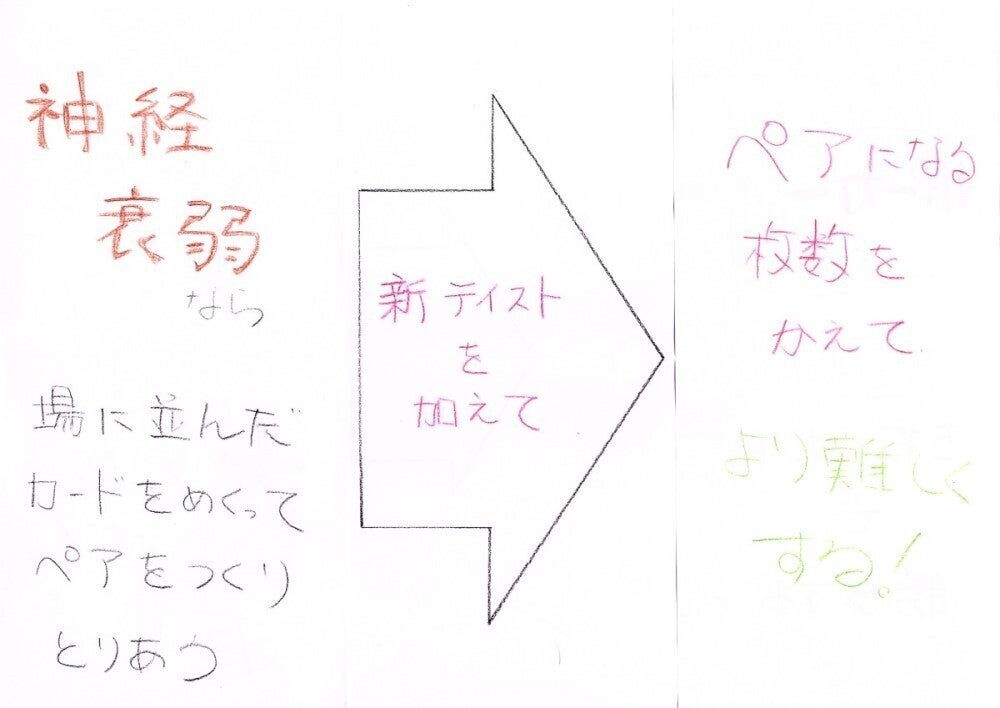 神経
衰弱
なら
場に並んだ
カードをめくって
ペアをつくり
とりあう
新テイスト
を
加えて
ペアになる
枚数を
かえて
より難しく
する!